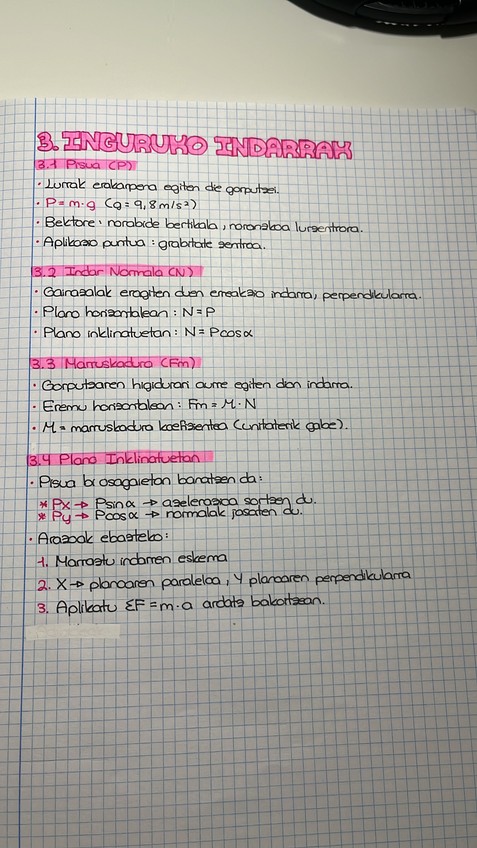 3. INGURUKO INDARRAK
3.1 Pisua (P)
· Lurrak erakarpena egiten die gorputzei.
· P=m·g (g=9,8m/s²)
· Bektore: norabide bertikala, noranzkoa lurzentrora.
· Aplikazio puntua: grabitate zentroa.
3.2 Indar Normala (N)
· Gainazalak eragiten duen erreakzio indarra, perpendikularra.
· Plano horizontalean: N=P
· Plano inklinatuetan: N=Pcosα
3.3 Marruskadura (Fm)
· Gorputzaren higidurari aurre egiten dion indarra.
· Eremu horizontalean: Fm=M·N
· M = marruskadura koefizientea (unitaterik gabe).
3.4 Plano Inklinatuetan
· Pisua bi osagaietan banatzen da:
* Px → Psinα → azelerazioa sortzen du.
* Py → Pcosα → normalak jasaten du.
· Arazoak ebazteko:
1. Marraztu indarren eskema
2. X → planoaren paraleloa, Y planoaren perpendikularra
3. Aplikatu ΣF=m·a ardatz bakoitzean.